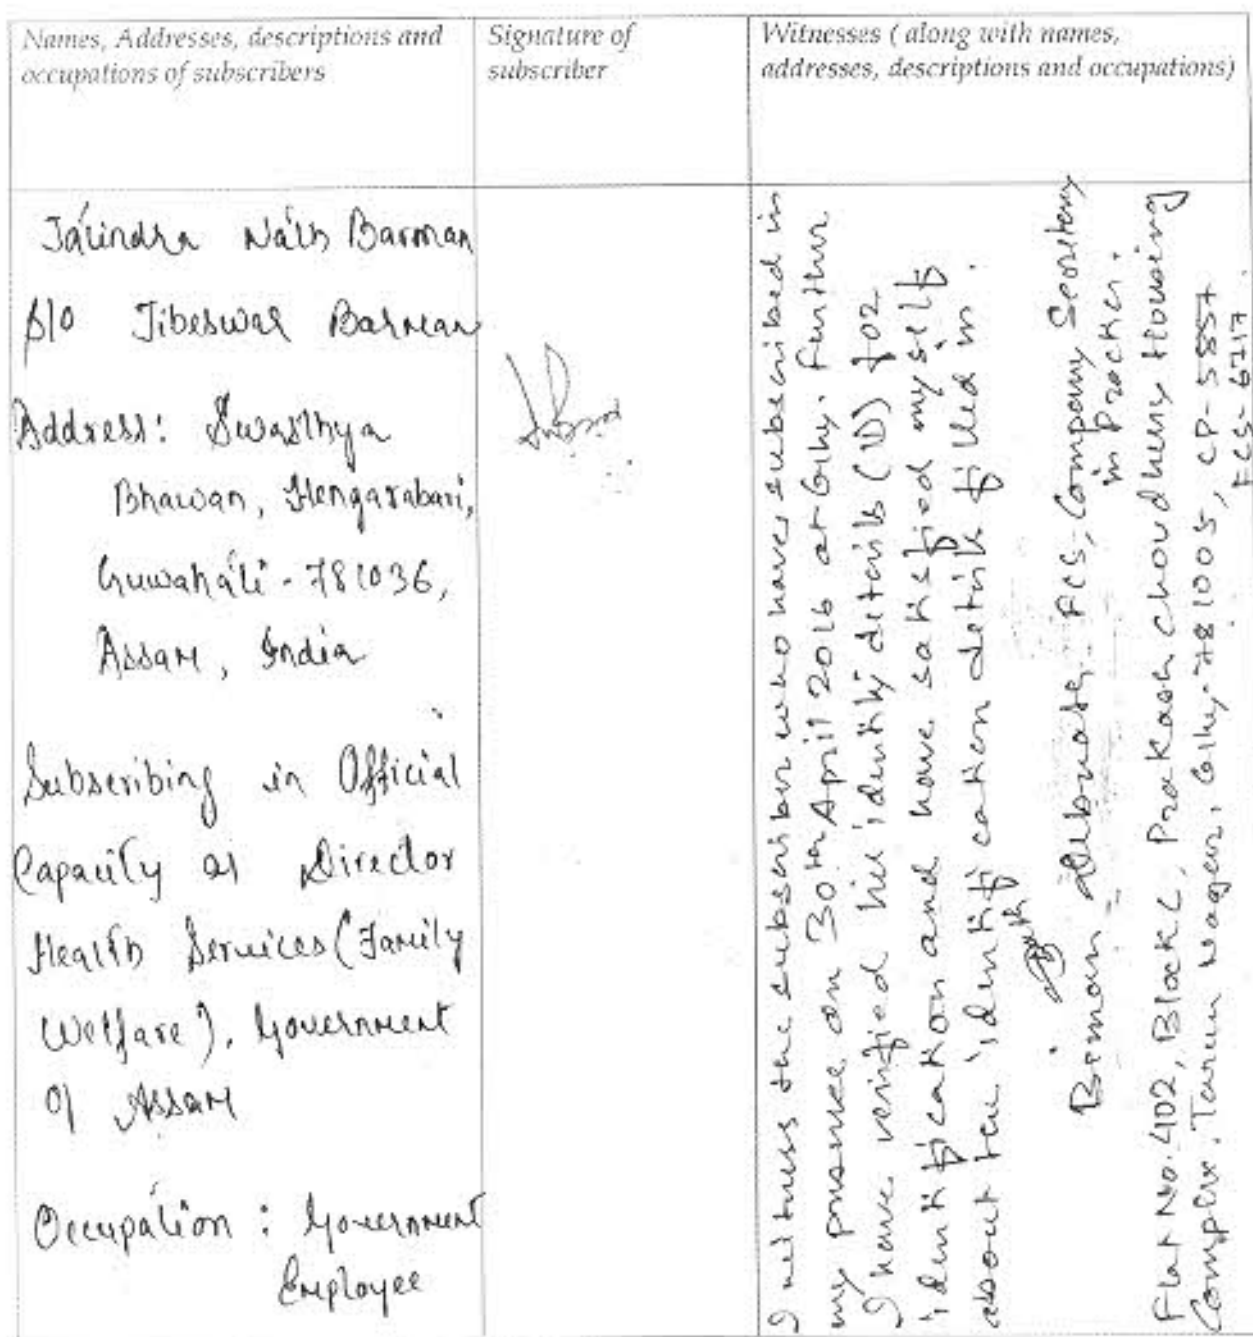 Names, Addresses, descriptions and
occupations of subscribers
Signature of
subscriber
Witnesses ( along with names,
addresses, descriptions and occupations)
Jatindra Nath Barman
S/o Jibeswar Barman
Address: Swasthya
Bhawan, Hengarabari,
Guwahati - 781036,
Assam, India
Subscribing in Official
Capacity as Director
Health Services (Family
Welfare), Government
Of Assam
Occupation : Government
Employee
I witness the subscriber who have subscribed in
my presence on 30th April 2016 at Ghy. Further
I have verified his identity details (ID) for
identification and have satisfied myself
about the identification details filled in.
Biman Debnath, FCS, Company Secretary
in Practice.
Flat No. 402, Block C, Prakash Choudhury Housing
Complex, Tarun Nagar, Ghy-781005, CP-5857
FCS-6717.